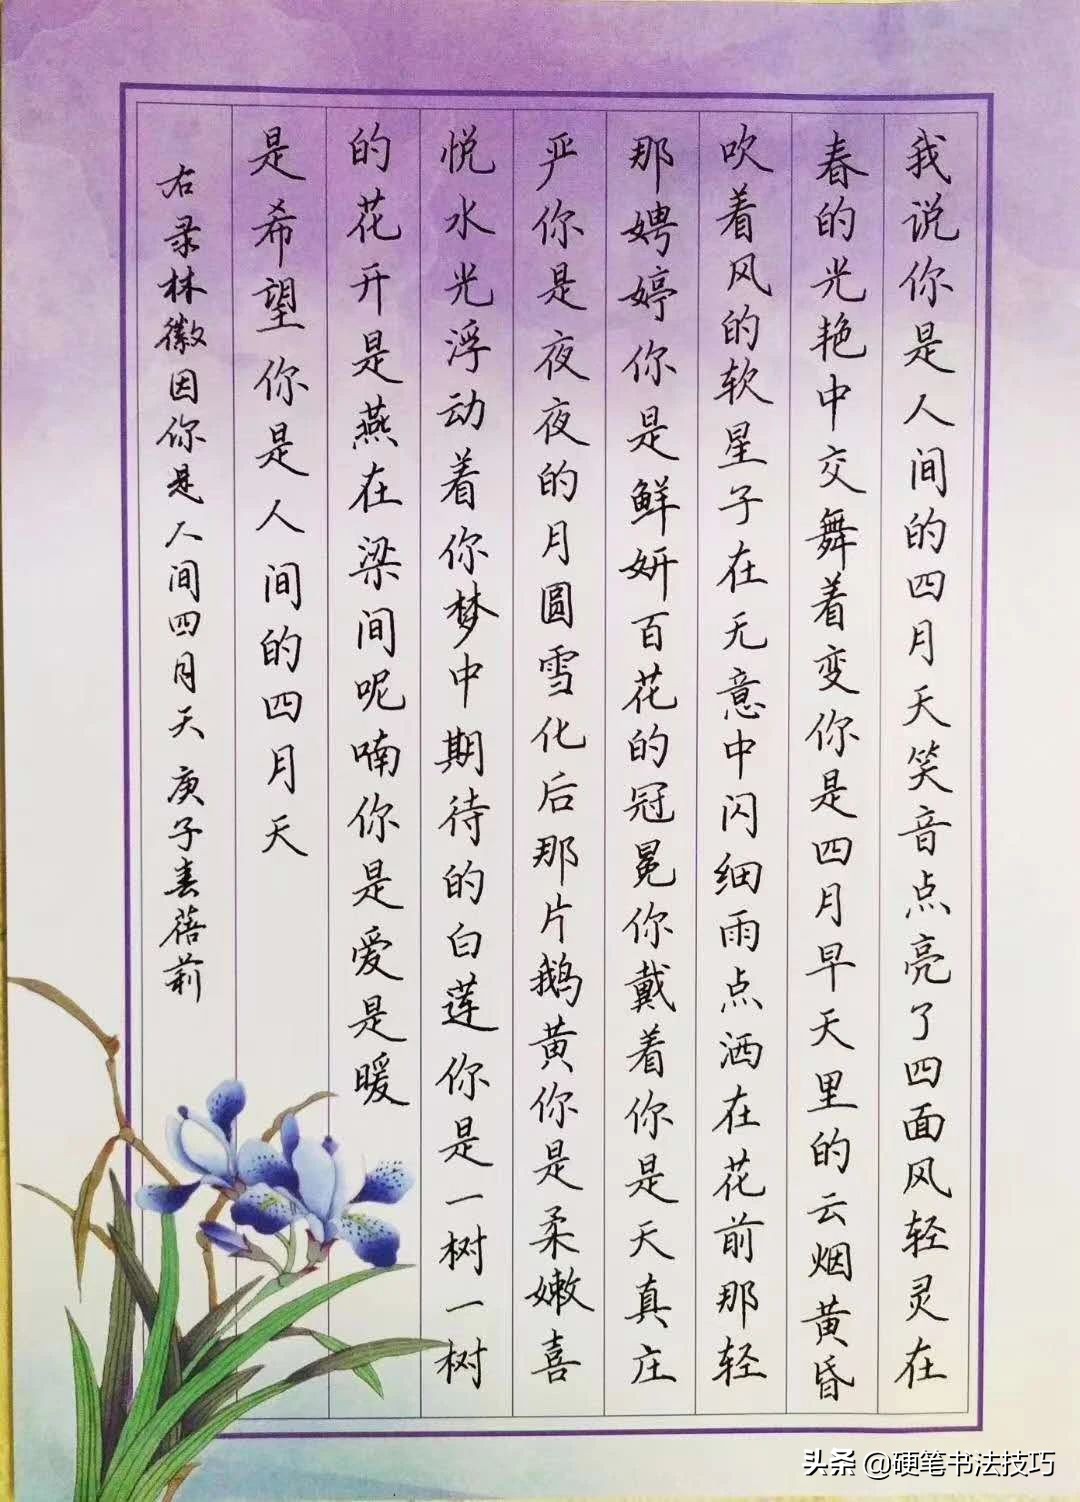 我说你是人间的四月天笑音点亮了四面风轻灵在
春的光艳中交舞着变你是四月早天里的云烟黄昏
吹着风的软星子在无意中闪细雨点洒在花前那轻
那娉婷你是鲜妍百花的冠冕你戴着你是天真庄
严你是夜夜的月圆雪化后那片鹅黄你是柔嫩喜
悦水光浮动着你梦中期待的白莲你是一树一树
的花开是燕在梁间呢喃你是爱是暖
是希望你是人间的四月天
右录林徽因你是人间四月天 庚子春蓓莉
头条 @硬笔书法技巧